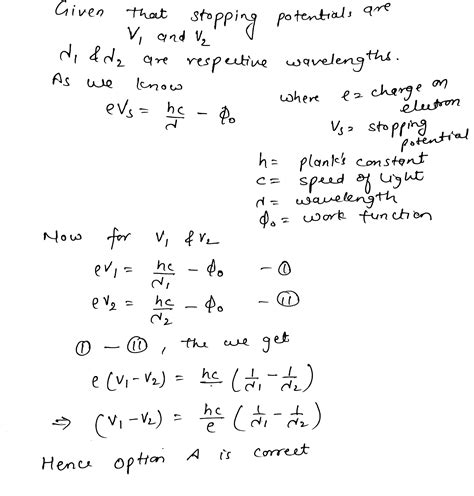 Given that stopping potentials are
V₁ and V₂
λ₁ & λ₂ are respective wavelengths.
As we know
eVs = hc/λ - ϕ₀
where e = charge on
electron
Vs = stopping
potential
h = plank's constant
c = speed of light
λ = wavelength
ϕ₀ = work function
Now for V₁ & V₂
eV₁ = hc/λ₁ - ϕ₀ - (I)
eV₂ = hc/λ₂ - ϕ₀ - (II)
(I) - (II), the we get
e(V₁-V₂) = hc (1/λ₁ - 1/λ₂)
⇒ (V₁-V₂) = hc/e (1/λ₁ - 1/λ₂)
Hence option A is correct